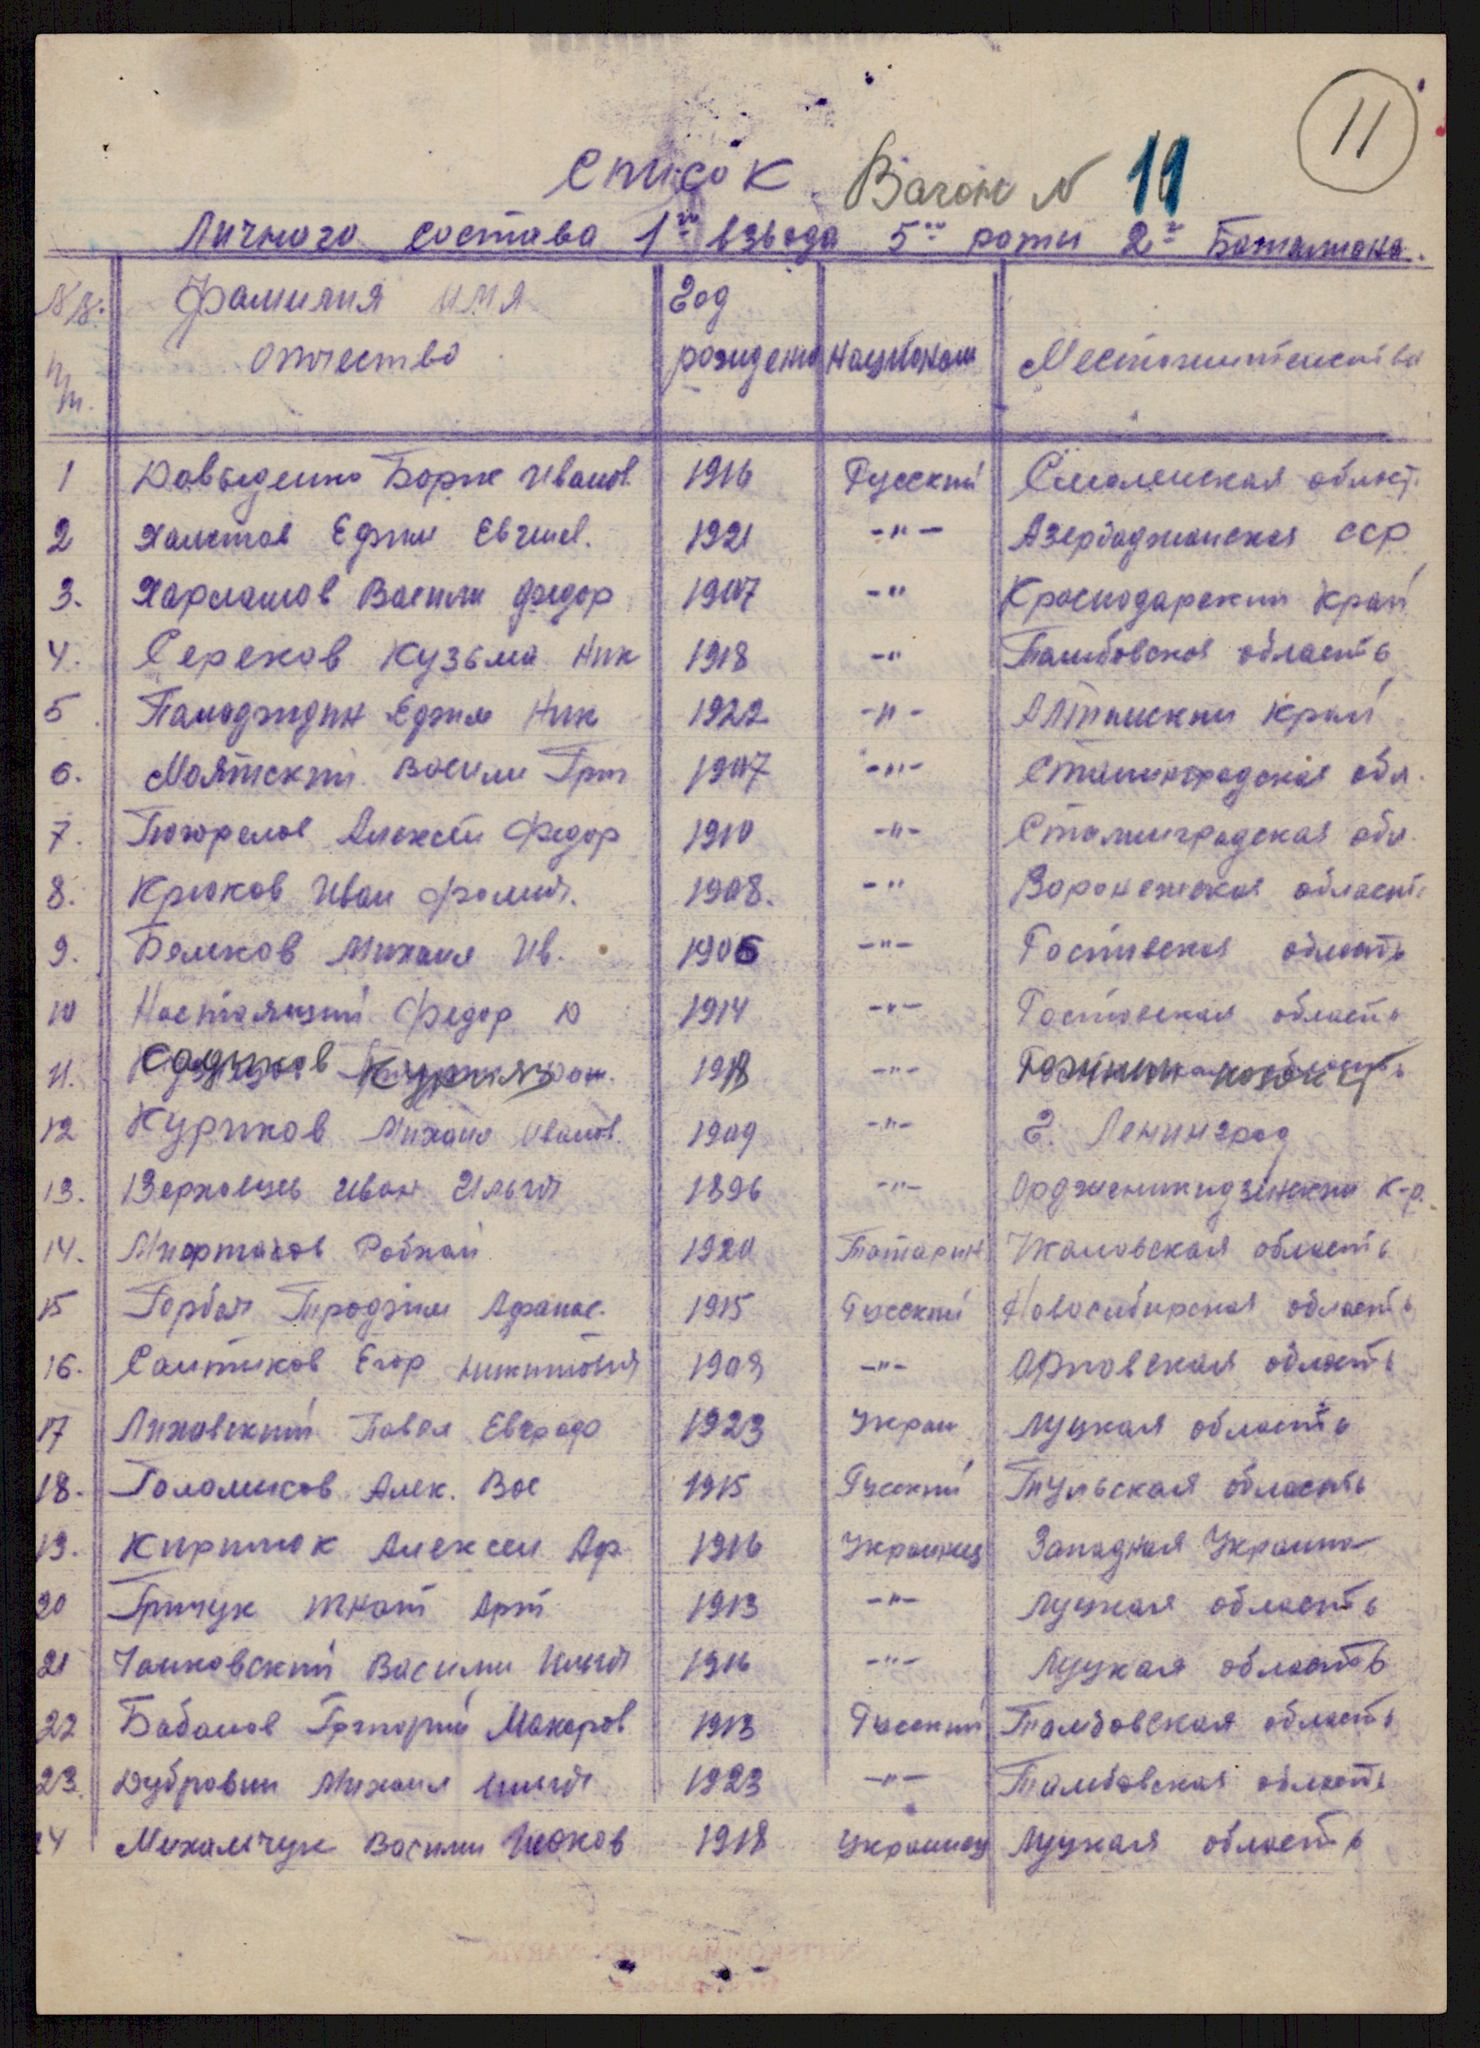 11
Список Вагон N 11
Личного состава 1го взвода 5ой роты 2го Баталиона.
N/N: Фамилия имя Год
п/п. отчество рождения Национал Местожительства
1 Давыденко Борис Иванов 1916 Русский Смоленская област
2 Халстов Ефим 1921 -"- Азербаджанская ССР
3. Харламов Васили Федор 1907 -" Краснодарский край
4. Сереков Кузьма Ник 1918 -" Тамбовская область
5 Ефим Ник 1922 -"- Алтайский край
6. Маятский Васили Григ 1907 -"- Сталинградская обл.
7. Погорелов Алексей Федор 1910 -"- Сталинградская обл.
8. Крюков Иван Фомич. 1908. -" Воронежская область
9. Беликов Михаил Ив. 1906 -"- Ростовская область
10 Настоящий Федор Ю 1914 -"- Ростовская область
11. Садыков 1918 -"-
12 Куриков Михаил Иванов. 1909 -"- г. Ленинград
13. Верховцев Иван Ильич 1896 -"- Орджоникидзевский к-р.
14. Мифтахов 1920 Татарин Чкаловская область
15 Горбач Трофим Афанас. 1915 Русский Новосибирская область
16. Салтыков Егор Никитович 1908 -"- Орловская область
17 Лиховский Павел Евграф 1923 Украи Луцкая область
18. Голомисов Алек. Вас 1915 Русский Тульская область
19. Кирилюк Алексеи Аф. 1916 Украинец Западная Украина
20 Гричук Игнат Арт 1913 -"- Луцкая область
21 Чайковский Васили Ильич 1916 -"- Луцкая область
22 Бабанов Григорий Макаров 1913 Русский Тамбовская область
23. Дубровин Михаил Ильич 1923 -"- Тамбовская область
24 Михальчук Васили Исаков 1918 Украинец Луцкая область